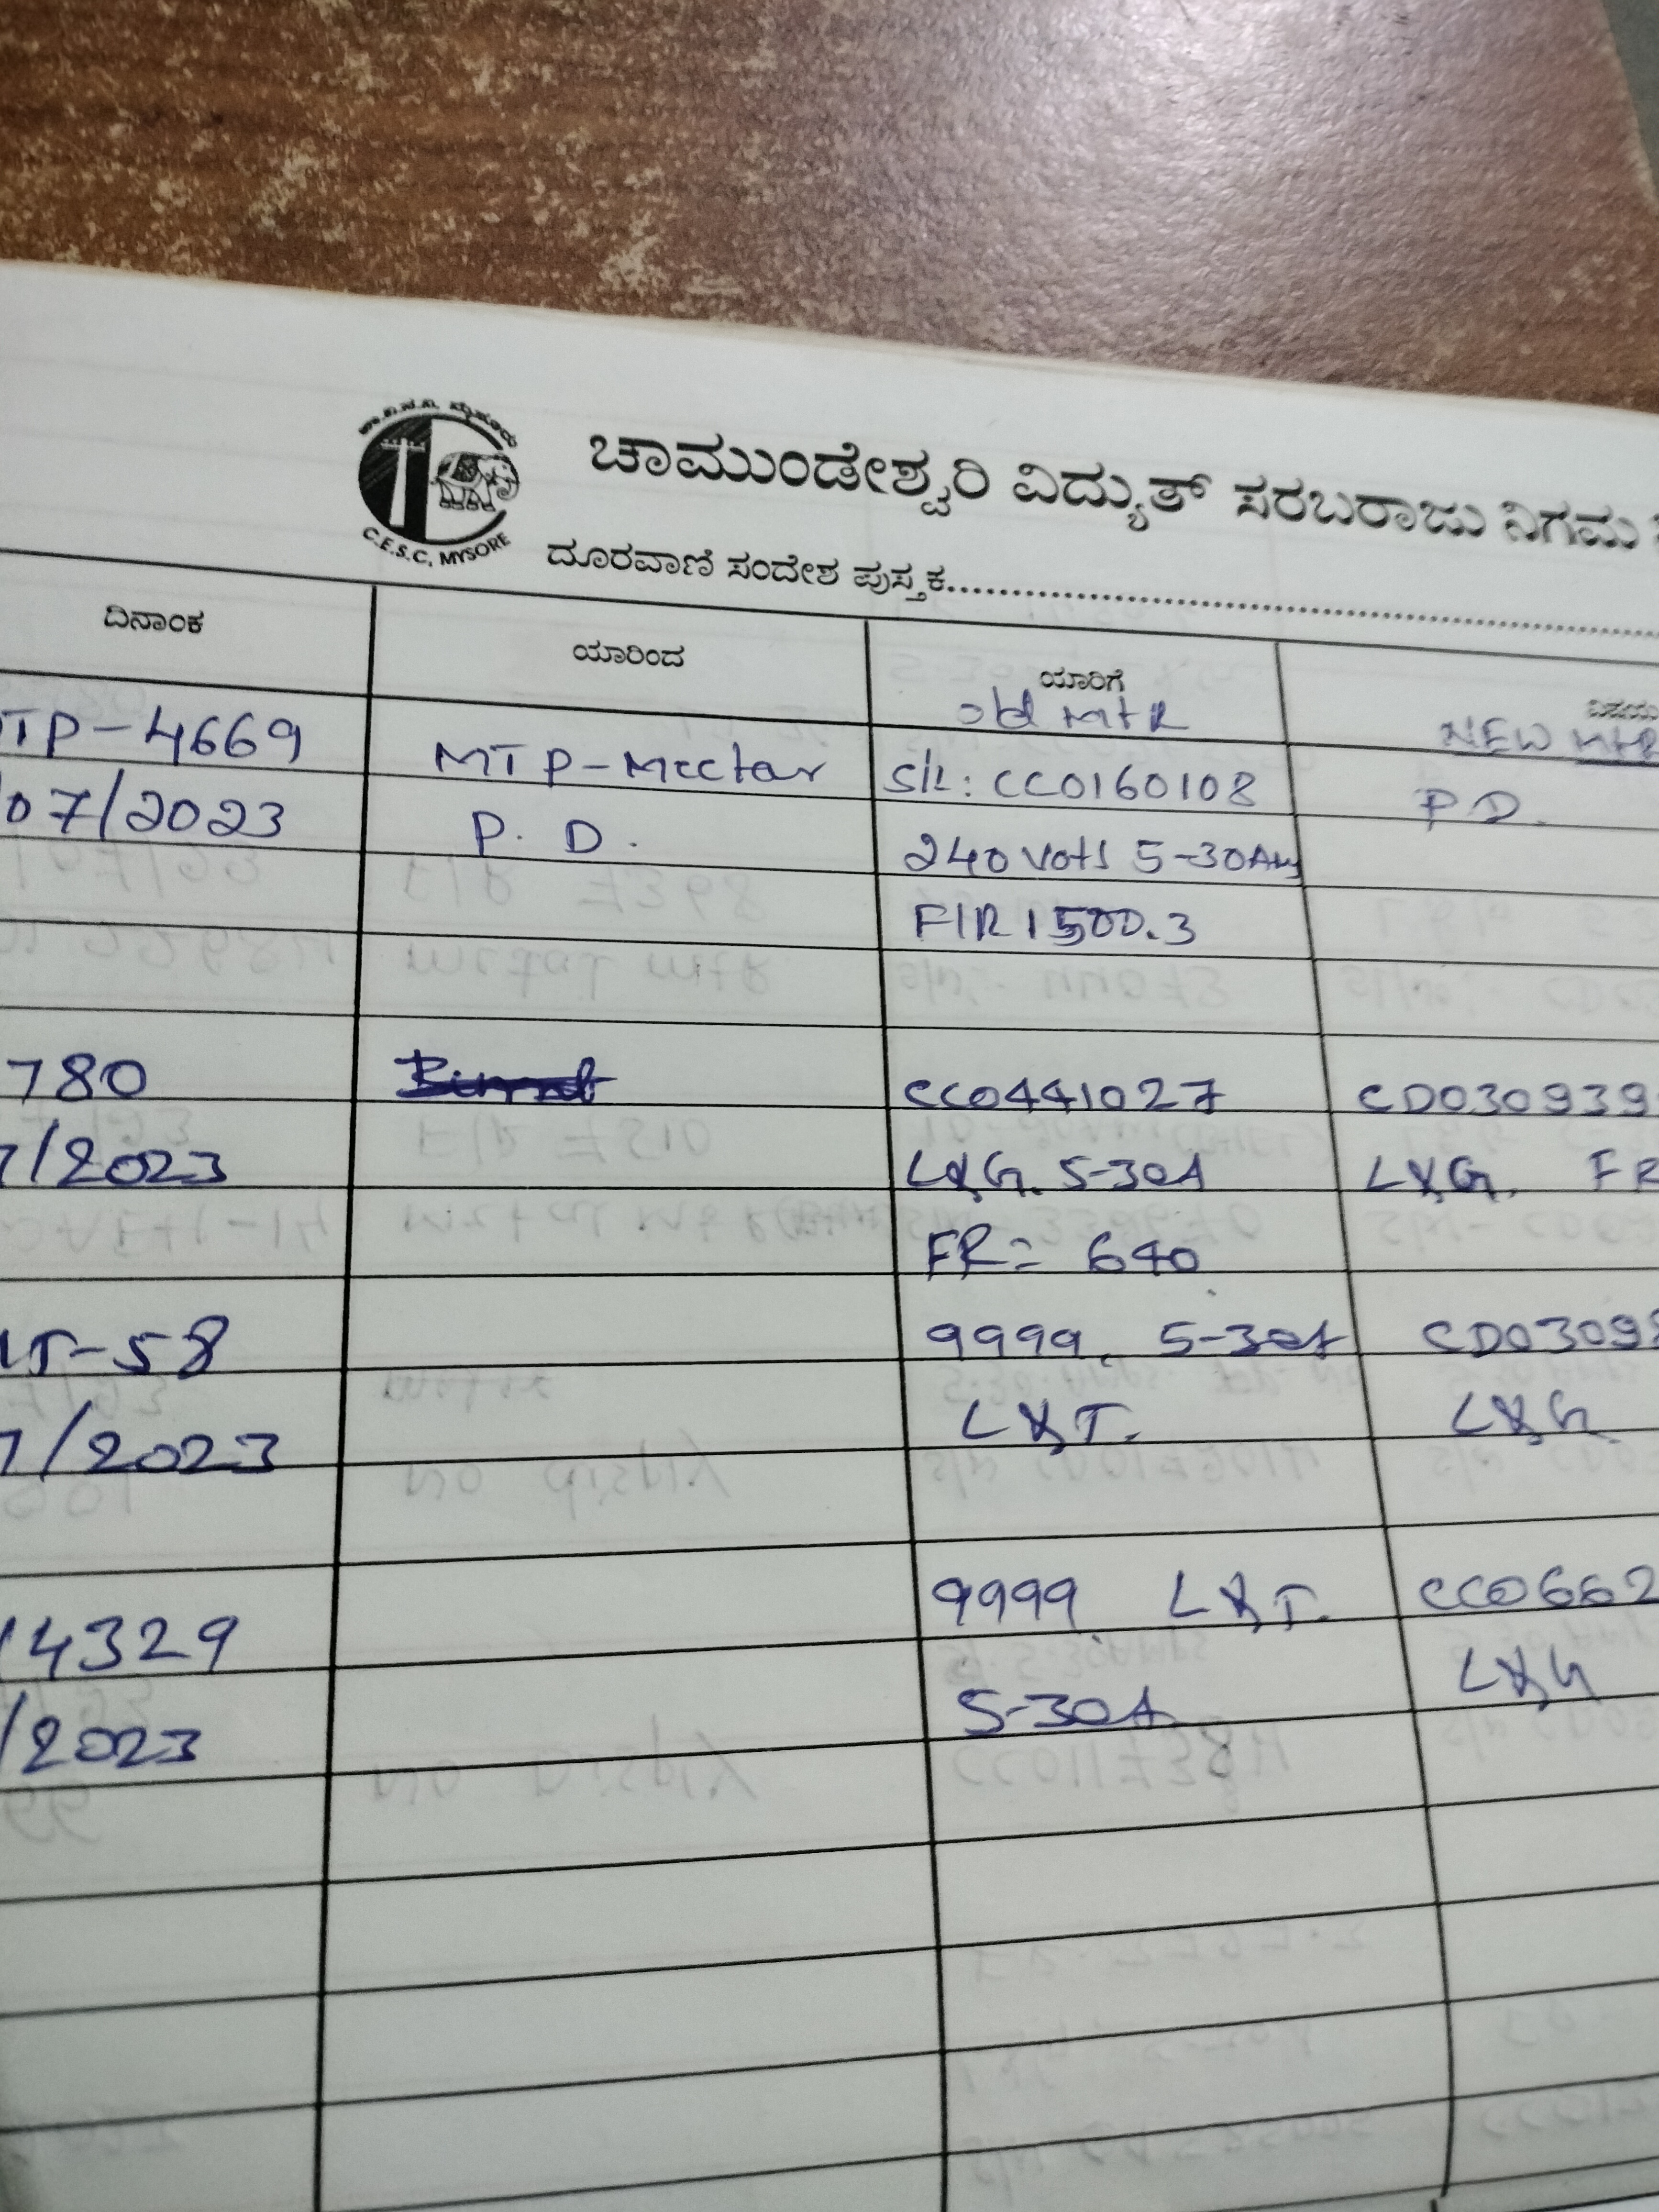 ಚಾ.ವಿ.ಸ.ನಿ. ಮೈಸೂರು
C.E.S.C, MYSORE
ಚಾಮುಂಡೇಶ್ವರಿ ವಿದ್ಯುತ್ ಸರಬರಾಜು ನಿಗಮ
ದೂರವಾಣಿ ಸಂದೇಶ ಪುಸ್ತಕ
ದಿನಾಂಕ ಯಾರಿಂದ ಯಾರಿಗೆ ವಿಷಯ
old MtR NEW MtR
TP-4669 MTP-Mcctar S/L: CC0160108 P.D.
07/2023 P. D. 240 Vots 5-30Am
FIR 1500.3
780 CC0441027 CD030939
7/2023 L&G. 5-30A L&G. FR
FR= 640
LT-58 9999. 5-30A CD03098
7/2023 L&T. L&G
9999 L&T. CC0662
14329 L&G
/2023 5-30A